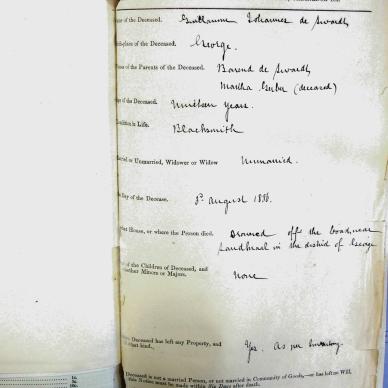 of the Deceased. Guillaume Johannes de Swardt
place of the Deceased. George.
of the Parents of the Deceased. Barend de Swardt
Martha Gerber (deceased)
of the Deceased. Nineteen years.
Condition in Life. Blacksmith
Married or Unmarried, Widower or Widow Unmarried.
The Day of the Decease. August
House, or where the Person died. Drowned off the
in the district of George
of the Children of Deceased, and
whether Minors or Majors. None
Deceased has left any Property, and
that kind. Yes. As per Inventory.
Deceased is not a married Person, or not married in Community of Goods,—or has left no Will,
this Notice must be made within Six Days after death.